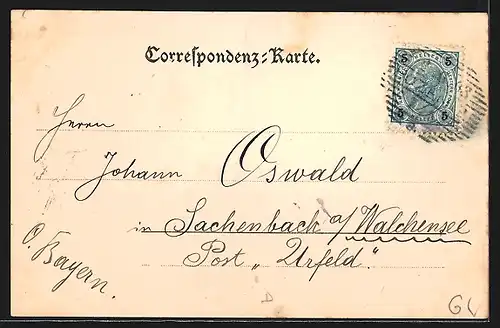 Correspondenz-Karte.
5 5
5 5
Herrn
Johann Oswald
in Sachenback a/Walchensee
Post „Urfeld."
O. Bayern.
GL